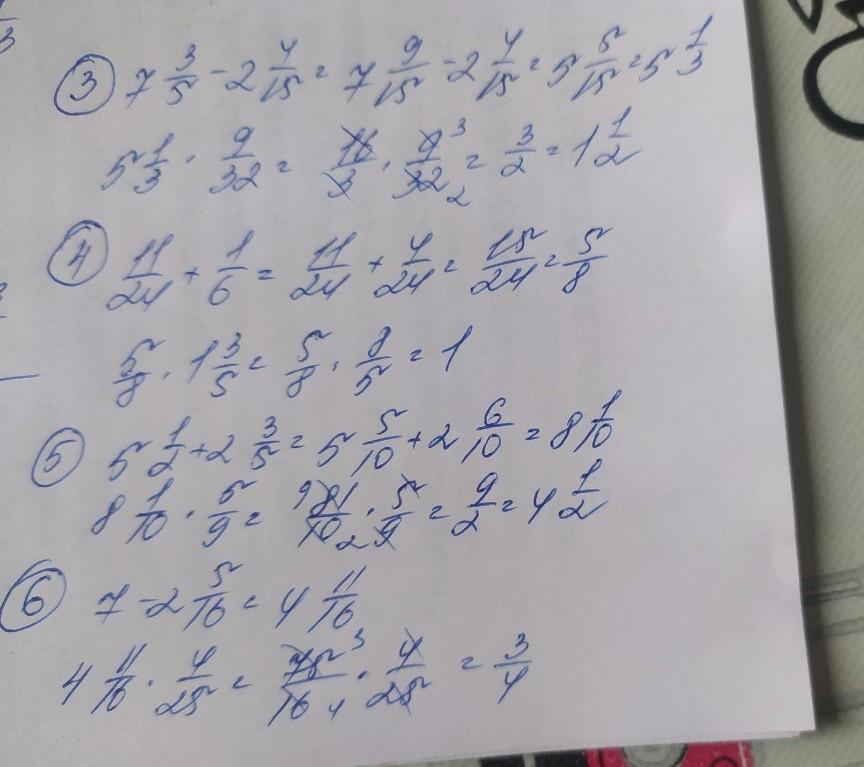 ③ 7 3/5 - 2 4/15 = 7 9/15 - 2 4/15 = 5 5/15 = 5 1/3
5 1/3 · 9/32 = 16/3 · 9/32 3 2 = 3/2 = 1 1/2
④ 11/24 + 1/6 = 11/24 + 4/24 = 15/24 = 5/8
5/8 · 1 3/5 = 5/8 · 8/5 = 1
⑤ 5 1/2 + 2 3/5 = 5 5/10 + 2 6/10 = 8 1/10
8 1/10 · 5/9 = 9 81/10 2 · 5/9 = 9/2 = 4 1/2
⑥ 7 - 2 5/16 = 4 11/16
4 11/16 · 4/25 = 75/16 3 4 · 4/25 = 3/4